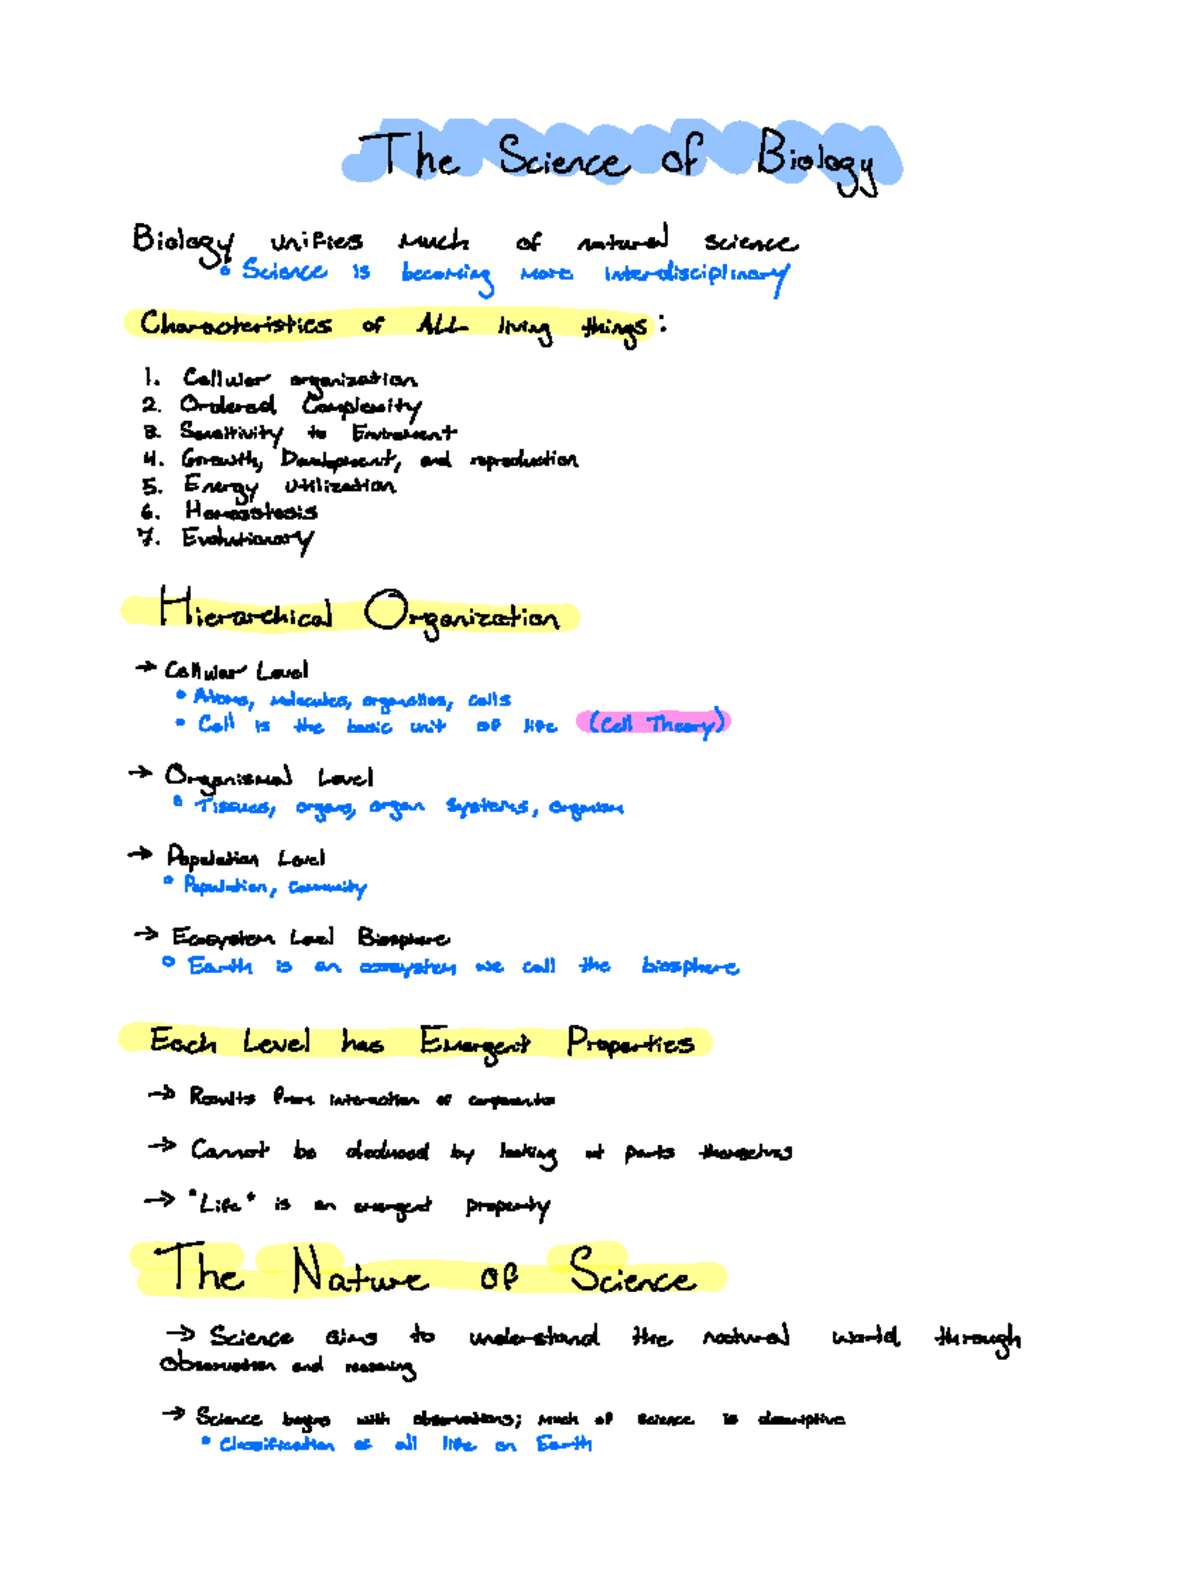 The Science of Biology
Biology unifies much of natural science
• Science is becoming more interdisciplinary
Characteristics of ALL living things:
1. Cellular organization
2. Ordered Complexity
3. Sensitivity to Enviroment
4. Growth, Development, and reproduction
5. Energy utilization
6. Homeostasis
7. Evolutionary
Hierarchical Organization
→ Cellular Level
• Atoms, molecules, organelles, cells
• Cell is the basic unit of life (Cell Theory)
→ Organismal Level
• Tissues, organs, organ systems, organism
→ Population Level
• Population, community
→ Ecosystem Level Biosphere
• Earth is an ecosystem we call the biosphere
Each Level has Emergent Properties
→ Results from interaction of components
→ Cannot be deduced by looking at parts themselves
→ "Life" is an emergent property
The Nature of Science
→ Science aims to understand the natural world through
observation and reasoning
→ Science begins with observations; much of science is descriptive
• Classification of all life on Earth